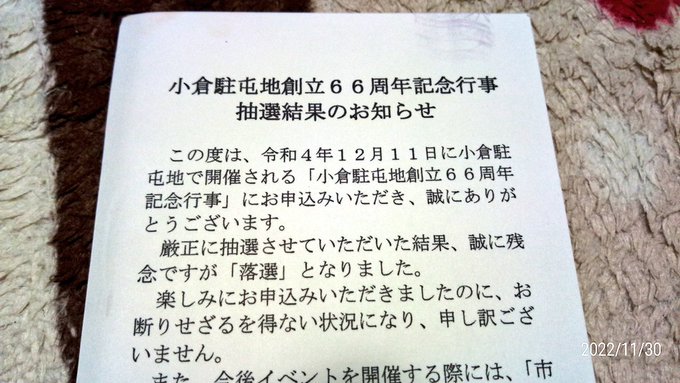 小倉駐屯地創立６６周年記念行事
抽選結果のお知らせ
この度は、令和４年１２月１１日に小倉駐
屯地で開催される「小倉駐屯地創立６６周年
記念行事」にお申込みいただき、誠にありが
とうございます。
厳正に抽選させていただいた結果、誠に残
念ですが「落選」となりました。
楽しみにお申込みいただきましたのに、お
断りせざるを得ない状況になり、申し訳ござ
いません。
また、今後イベントを開催する際には、「市
2022/11/30